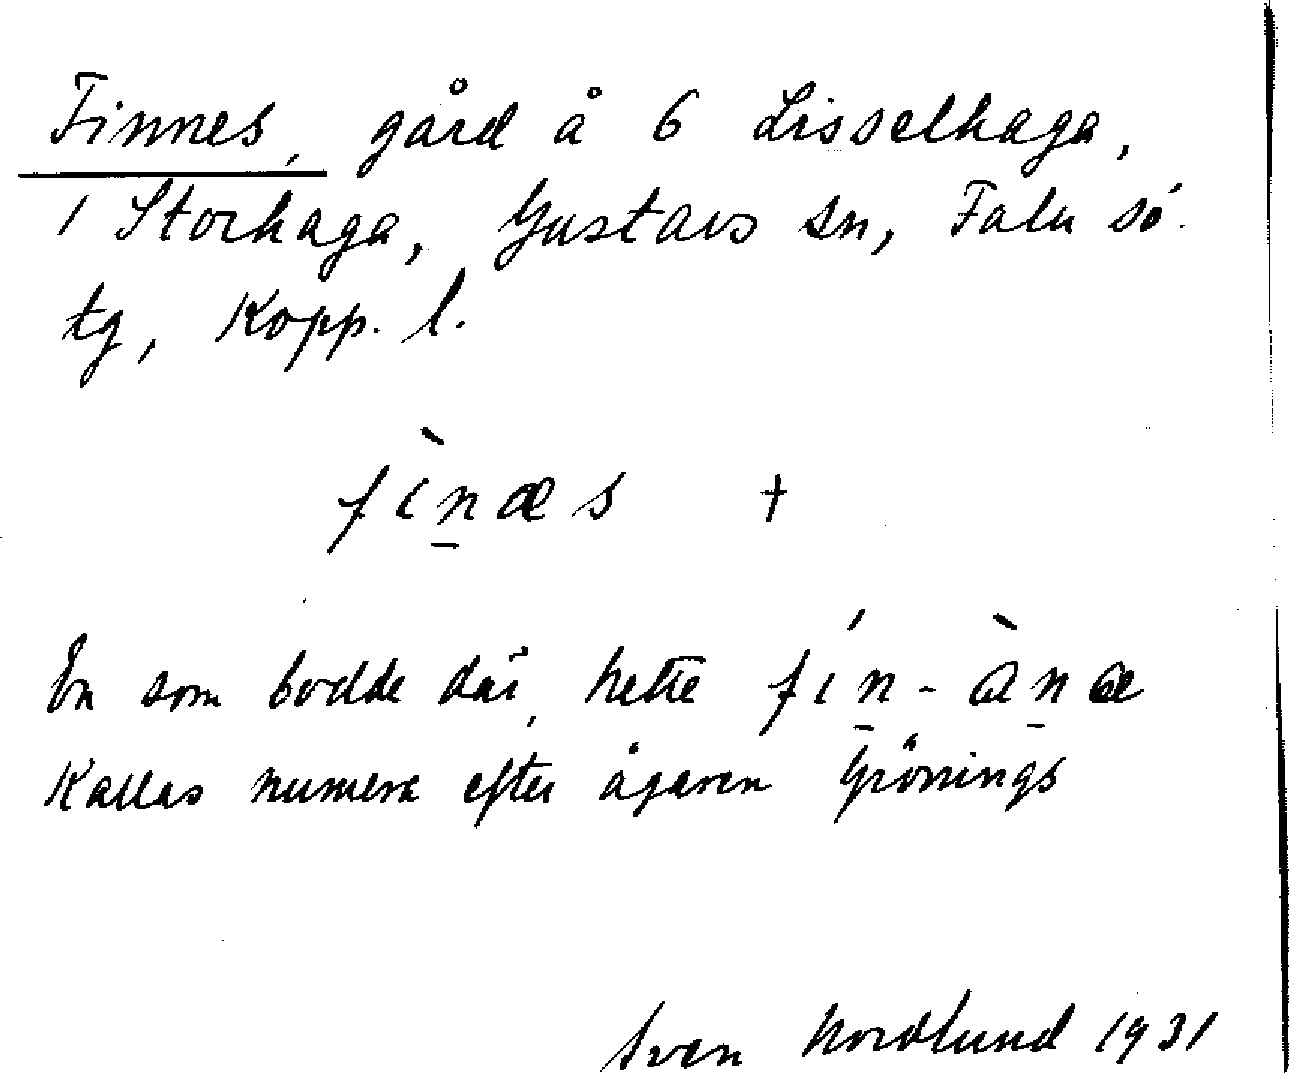 Finnes, gård å 6 Lisselhaga,
1 Storhaga, Gustavs sn, Falu sö.
tg, Kopp. l.
fìn̠æs +
En som bodde där, hette fín̠-àn̠æ
Kallas numera efter ägaren Grönings
Sven Nordlund 1931